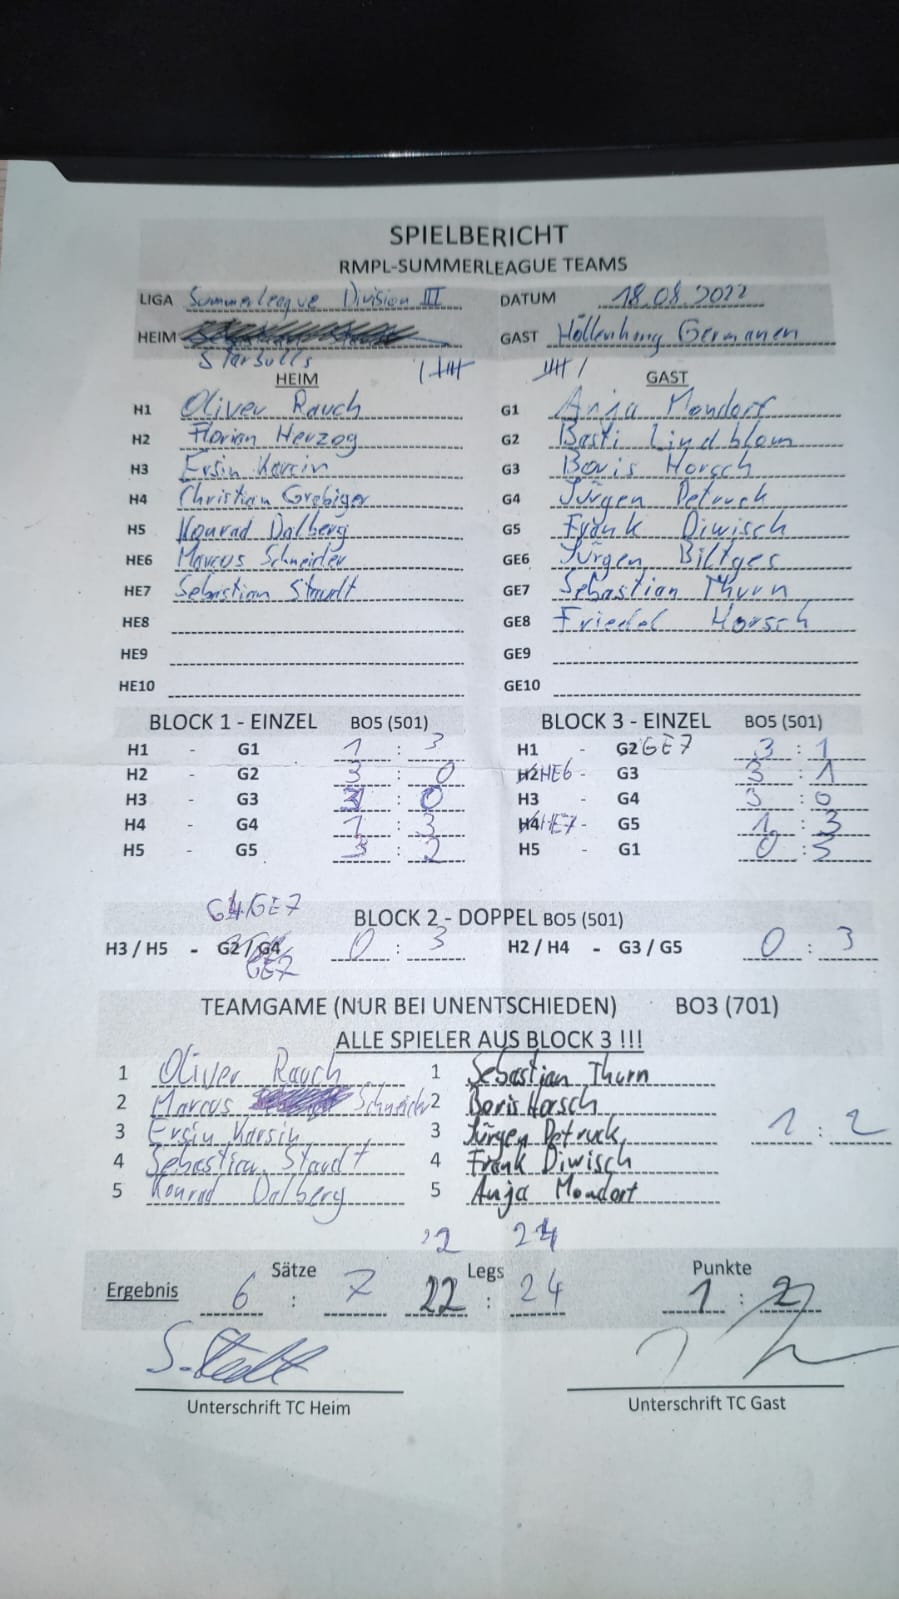 SPIELBERICHT
RMPL-SUMMERLEAGUE TEAMS
LIGA Summerleague Division III DATUM 18.08.2022
HEIM GAST Höllenhung Germanen
Starbulls
HEIM GAST
H1 Oliver Rauch G1 Anja Mondorf
H2 Florian Herzog G2 Basti Lindblom
H3 Ersin Karsin G3 Boris Horsch
H4 Christian Grebiger G4 Jürgen Petruck
H5 Konrad Dalberg G5 Frank Diwisch
HE6 Marcus Schneider GE6 Jürgen Biltges
HE7 Sebastian Staudt GE7 Sebastian Thurn
HE8 GE8 Friedel Horsch
HE9 GE9
HE10 GE10
BLOCK 1 - EINZEL BO5 (501) BLOCK 3 - EINZEL BO5 (501)
H1 - G1 1 : 3 H1 - G2 GE7 3 : 1
H2 - G2 3 : 0 H2 HE6 - G3 3 : 1
H3 - G3 3 : 0 H3 - G4 3 : 0
H4 - G4 1 : 3 H4 HE7 - G5 1 : 3
H5 - G5 3 : 2 H5 - G1 0 : 3
G4/GE7
BLOCK 2 - DOPPEL BO5 (501)
H3 / H5 - G2 / G4 0 : 3 H2 / H4 - G3 / G5 0 : 3
GE7
TEAMGAME (NUR BEI UNENTSCHIEDEN) BO3 (701)
ALLE SPIELER AUS BLOCK 3 !!!
1 Oliver Rauch 1 Sebastian Thurn
2 Marcus Schneider 2 Boris Horsch
3 Ersin Karsin 3 Jürgen Petruck 1 : 2
4 Sebastian Staudt 4 Frank Diwisch
5 Konrad Dalberg 5 Anja Mondorf
24
Sätze Legs Punkte
Ergebnis 6 : 7 22 : 24 1 : 2
Unterschrift TC Heim Unterschrift TC Gast